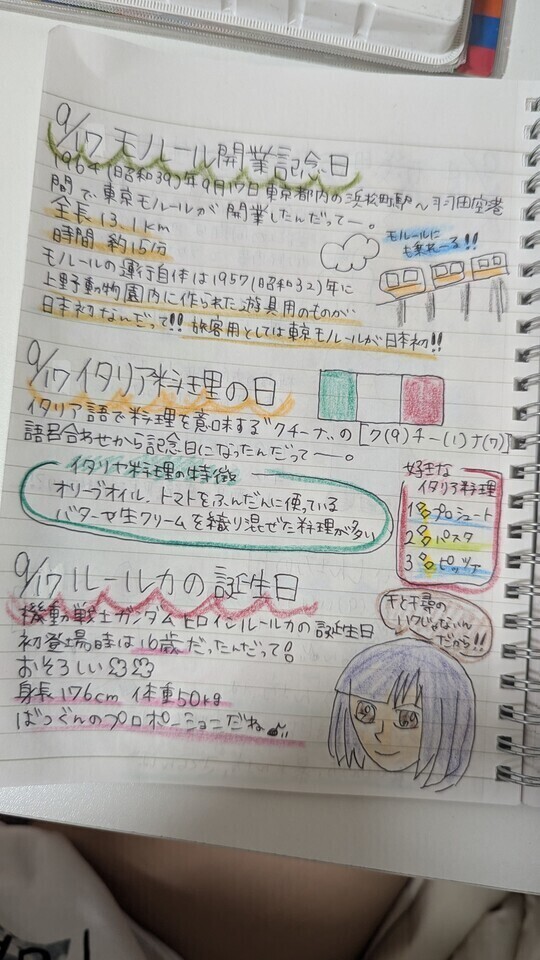 9/17 モノレール開業記念日
1964(昭和39)年9月17日東京都内の浜松町駅〜羽田空港
間で、東京モノレールが開業したんだってー。
全長13.1km
時間 約15分
モルールに
も乗れーる!!
モノレールの運行自体は1957(昭和32)年に
上野動物園内に作られた遊具用のものが
日本初なんだって!! 旅客用としては東京モノレールが日本初!!
9/17 イタリア料理の日
イタリア語で料理を意味する"クチーナ"の[ク(9)チー(1)ナ(7)]
語呂合わせから記念日になったんだってー。
イタリヤ料理の特徴
オリーブオイル、トマトをふんだんに使っている
バターや生クリームを織り混ぜた料理が多い
好きな
イタリア料理
1名プロシュート
2名パスタ
3名ピッツァ
9/17 ルールカの誕生日
機動戦士ガンダムヒロインルールカの誕生日
初登場時は16歳だったんだって!
おそろしい
身長176cm 体重50kg
ばつぐんのプロポーションだね
千と千尋の
ハクじゃないん
だから!!